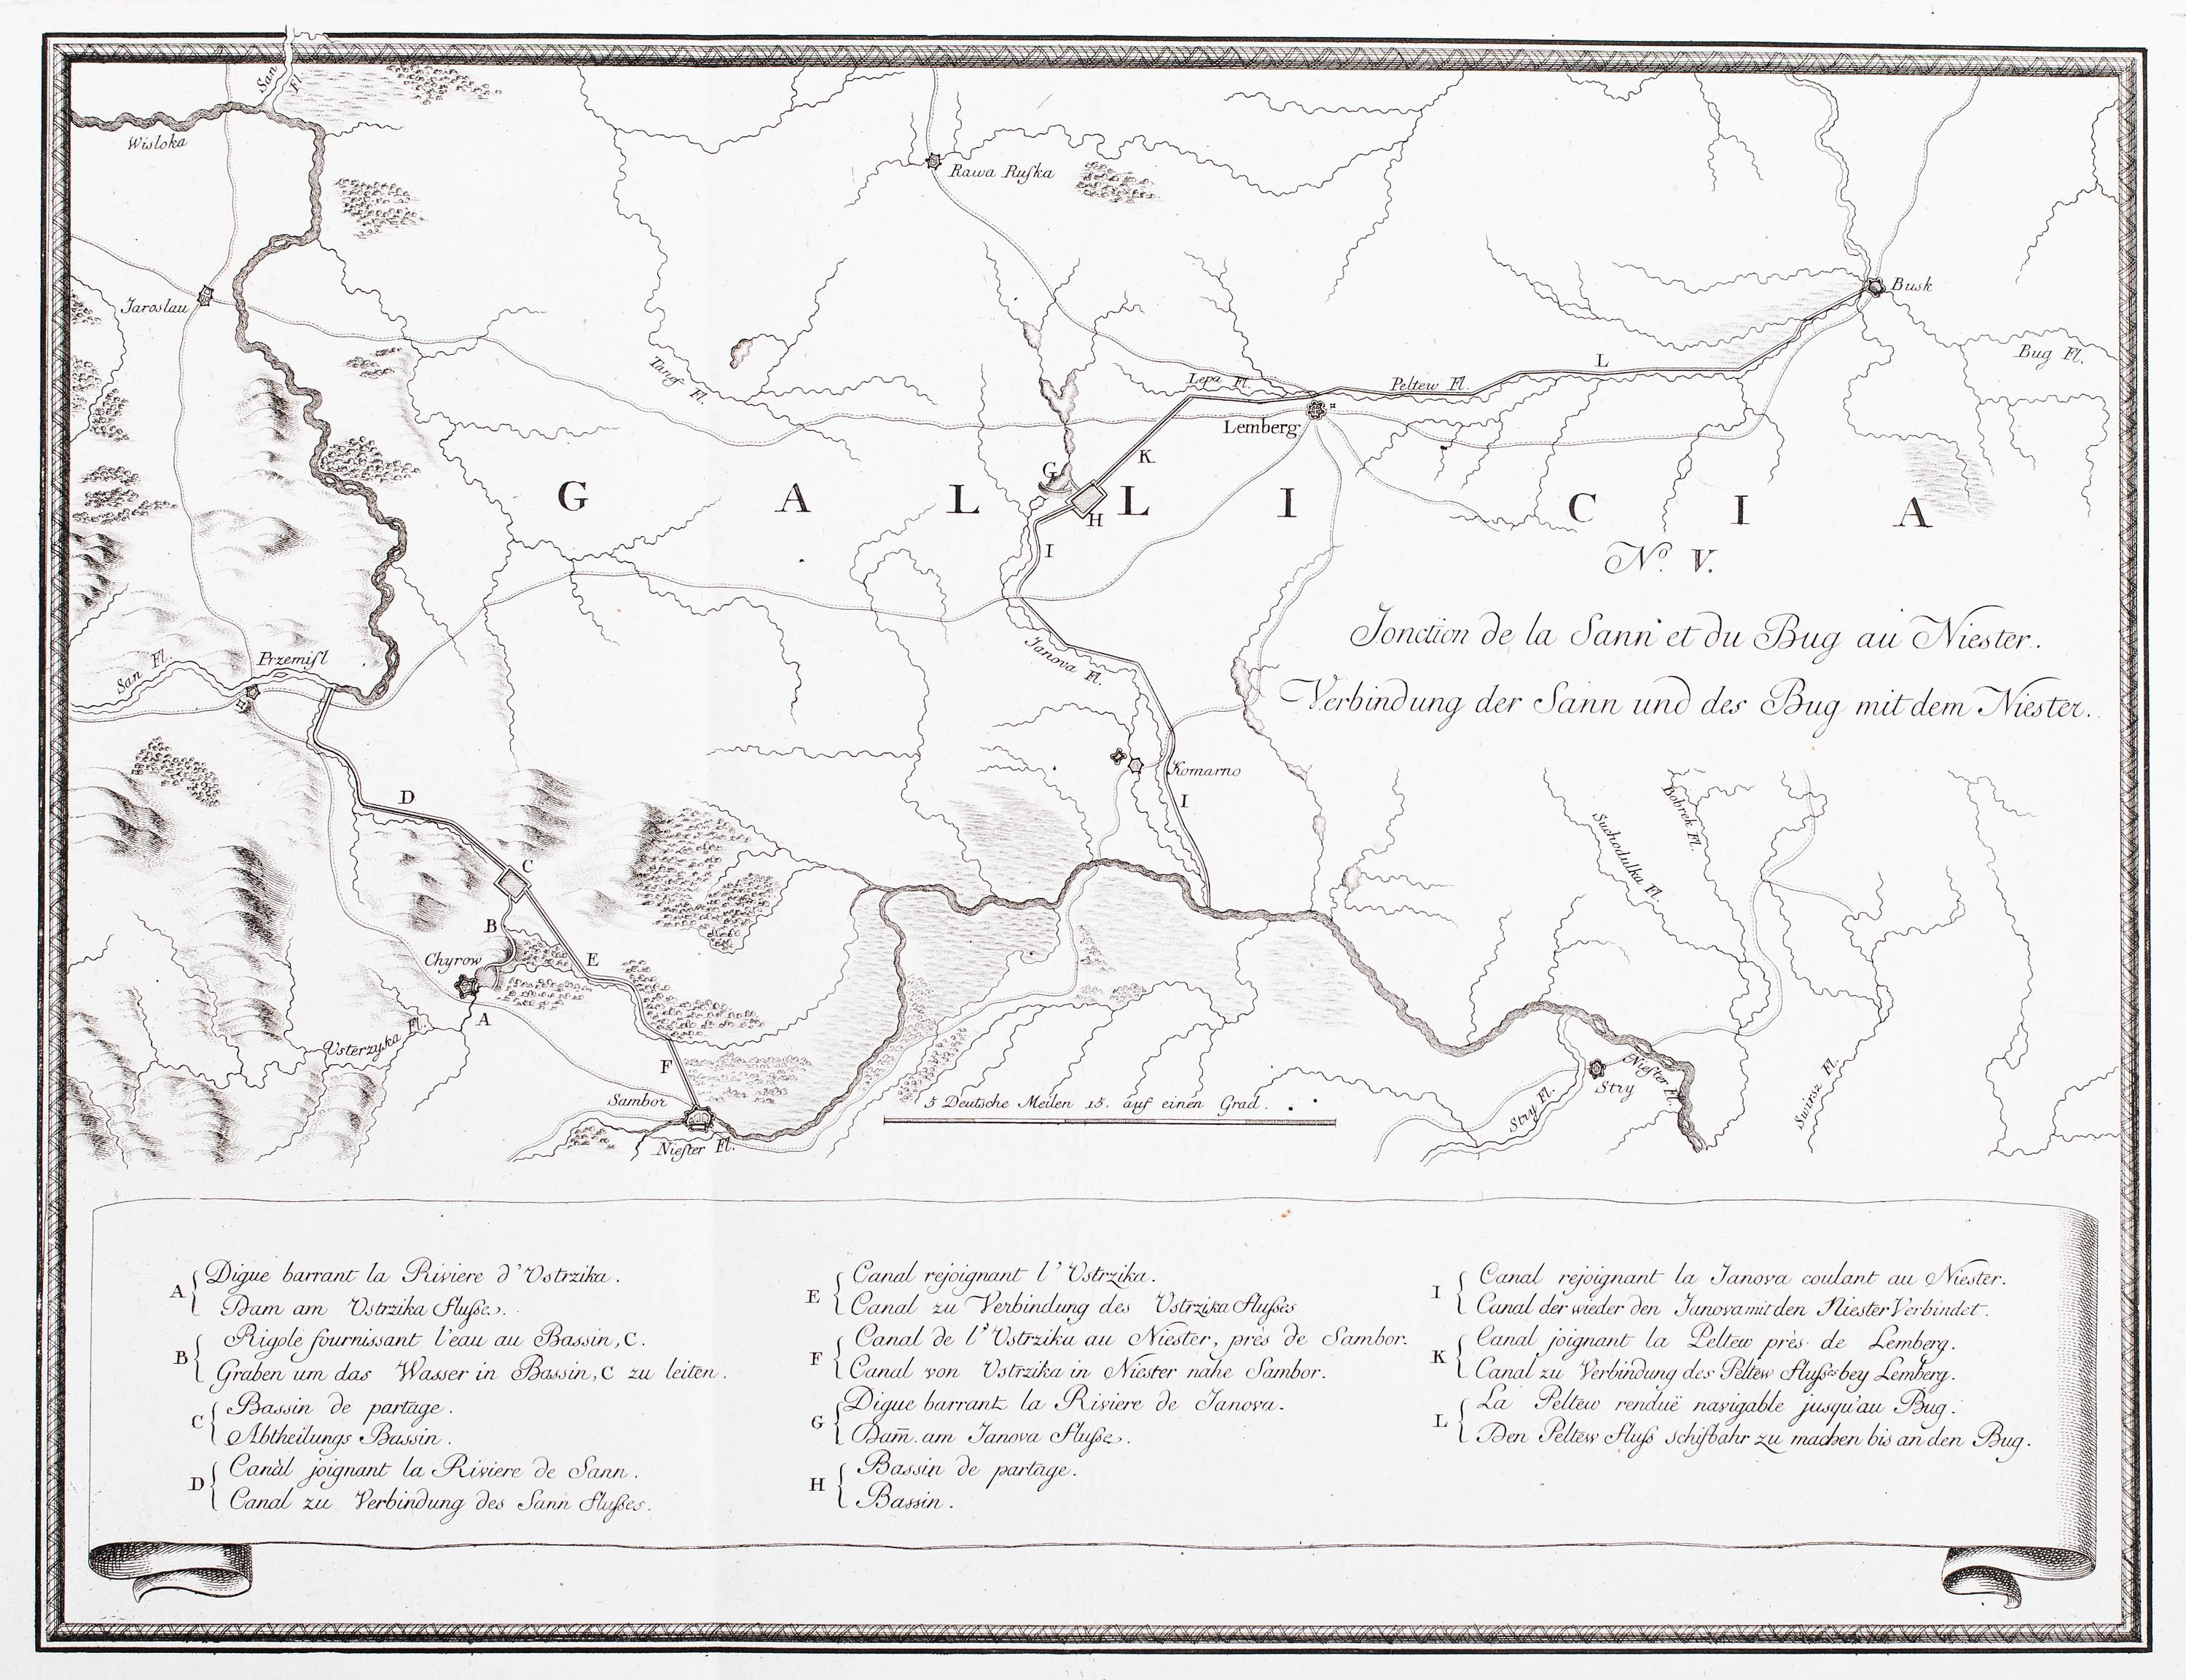 San Fl.
Wisloka
Rawa Ruſka
Jaroslau
Busk
Bug Fl.
Tanef Fl.
Lepa Fl.
Peltew Fl.
L
Lemberg
K
G
H
G A L L I C I A
I
Nº. V.
Jonction de la Sann et du Bug au Niester.
Verbindung der Sann und des Bug mit dem Niester.
Przemiſl
San Fl.
Janova Fl.
Komarno
I
D
C
B
E
Chyrow
A
Usterzyka Fl.
F
Sambor
Nieſter Fl.
Suchodulka Fl.
Bobrek Fl.
Stry
Stry Fl.
Nieſter Fl.
Swirsz Fl.
5 Deutsche Meilen 15. auf einen Grad.
A
Digue barrant la Riviere d'Ustrzika.
Dam am Ustrzika Flußes.
B
Rigole fournissant l'eau au Bassin, C.
Graben um das Wasser in Bassin, C zu leiten.
C
Bassin de partage.
Abtheilungs Bassin.
D
Canal joignant la Riviere de Sann.
Canal zu Verbindung des Sann Flußes.
E
Canal rejoignant l'Ustrzika.
Canal zu Verbindung des Ustrzika Flußes
F
Canal de l'Ustrzika au Niester, près de Sambor.
Canal von Ustrzika in Niester nahe Sambor.
G
Digue barrant la Riviere de Janova.
Dam̄. am Janova Fluße.
H
Bassin de partage.
Bassin.
I
Canal rejoignant la Janova coulant au Niester.
Canal der wieder den Janova mit den Niester Verbindet.
K
Canal joignant la Peltew près de Lemberg.
Canal zu Verbindung des Peltew Flußes bey Lemberg.
L
La Peltew renduë navigable jusqu'au Bug.
Den Peltew Fluß schifbahr zu machen bis an den Bug.